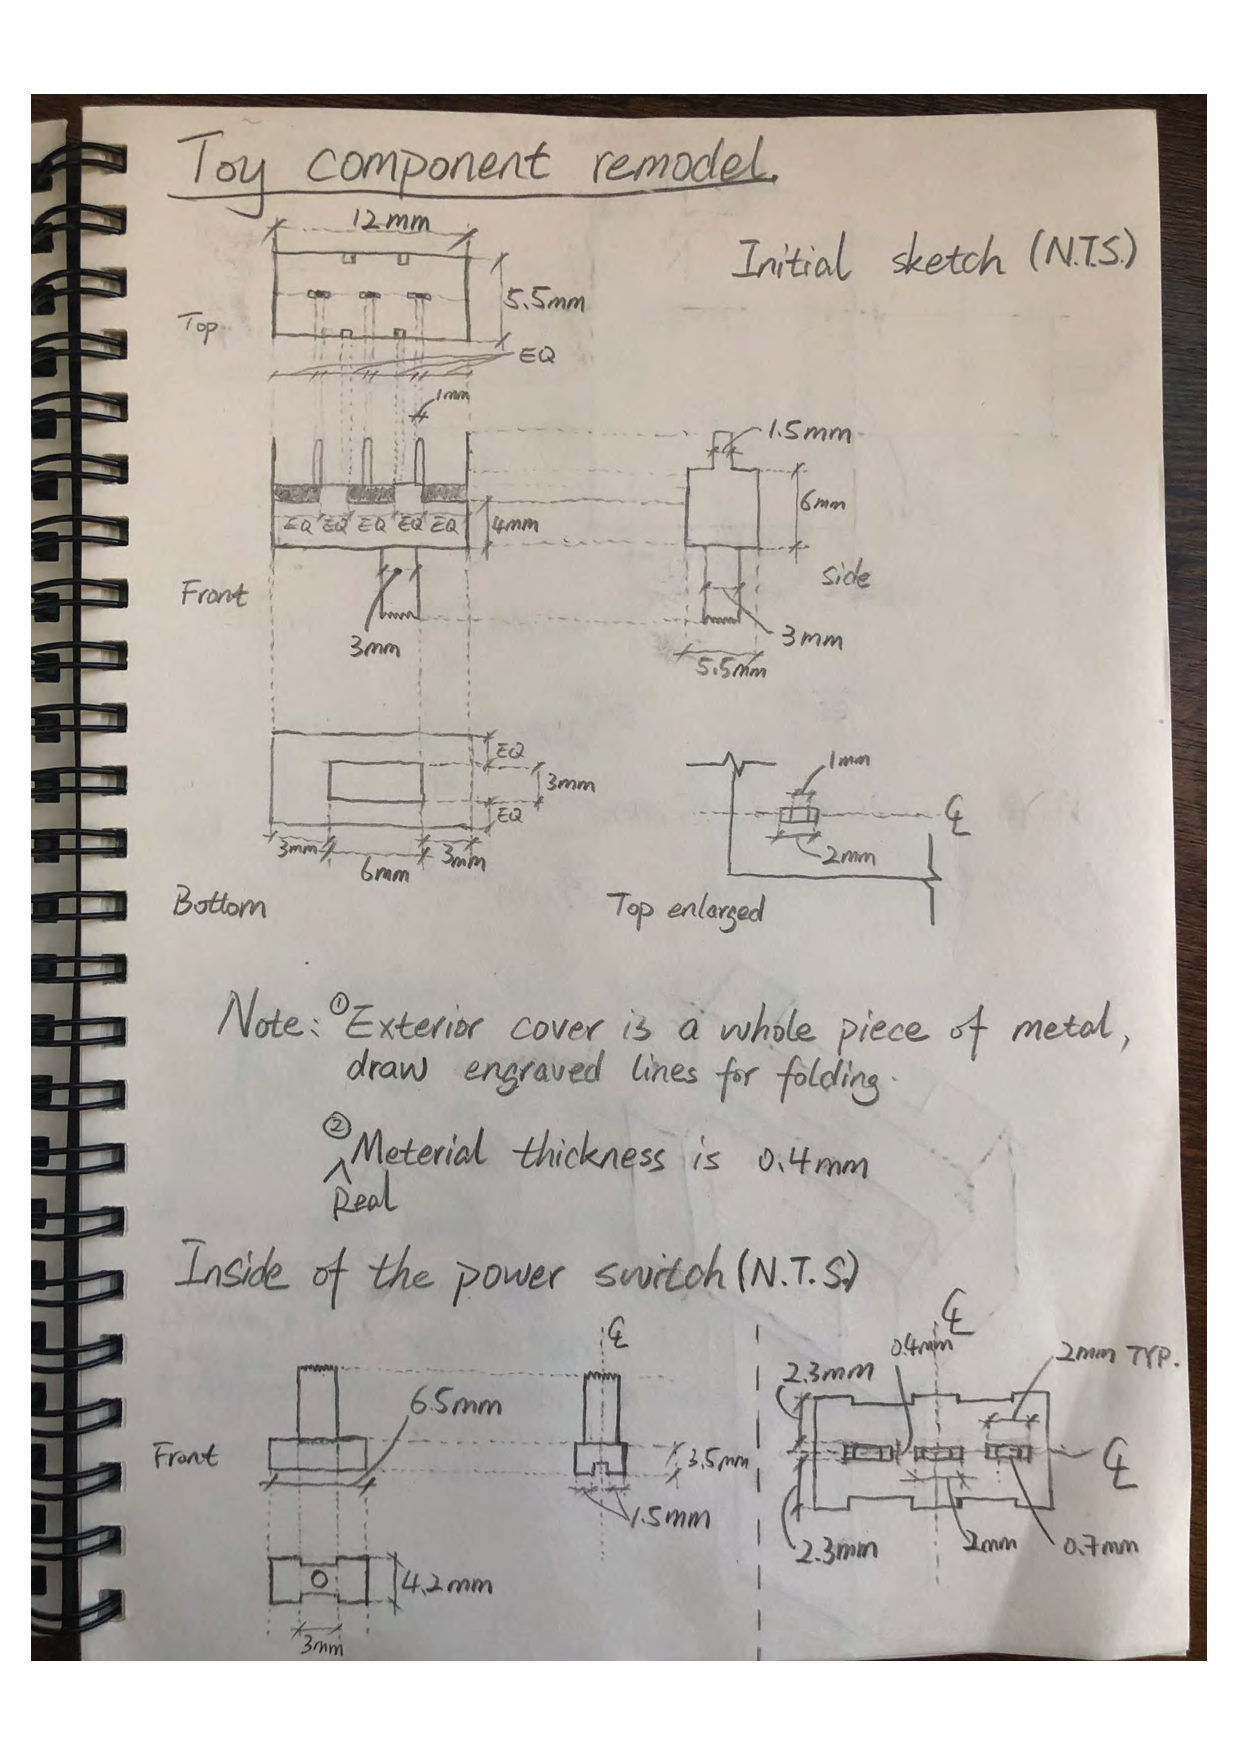 Toy component remodel.
12mm
Initial sketch (N.T.S.)
5.5mm
Top
EQ
1mm
1.5mm
6mm
EQ EQ EQ EQ EQ
4mm
side
Front
3mm
3mm
5.5mm
EQ
1mm
3mm
℄
EQ
3mm
6mm
3mm
2mm
Bottom
Top enlarged
Note: ① Exterior cover is a whole piece of metal,
draw engraved lines for folding.
② Meterial thickness is 0.4mm
^
Real
Inside of the power switch (N.T.S.)
℄
℄
0.4mm
2mm TYP.
2.3mm
6.5mm
Front
3.5mm
℄
1.5mm
2.3mm
2mm
0.7mm
4.2mm
3mm